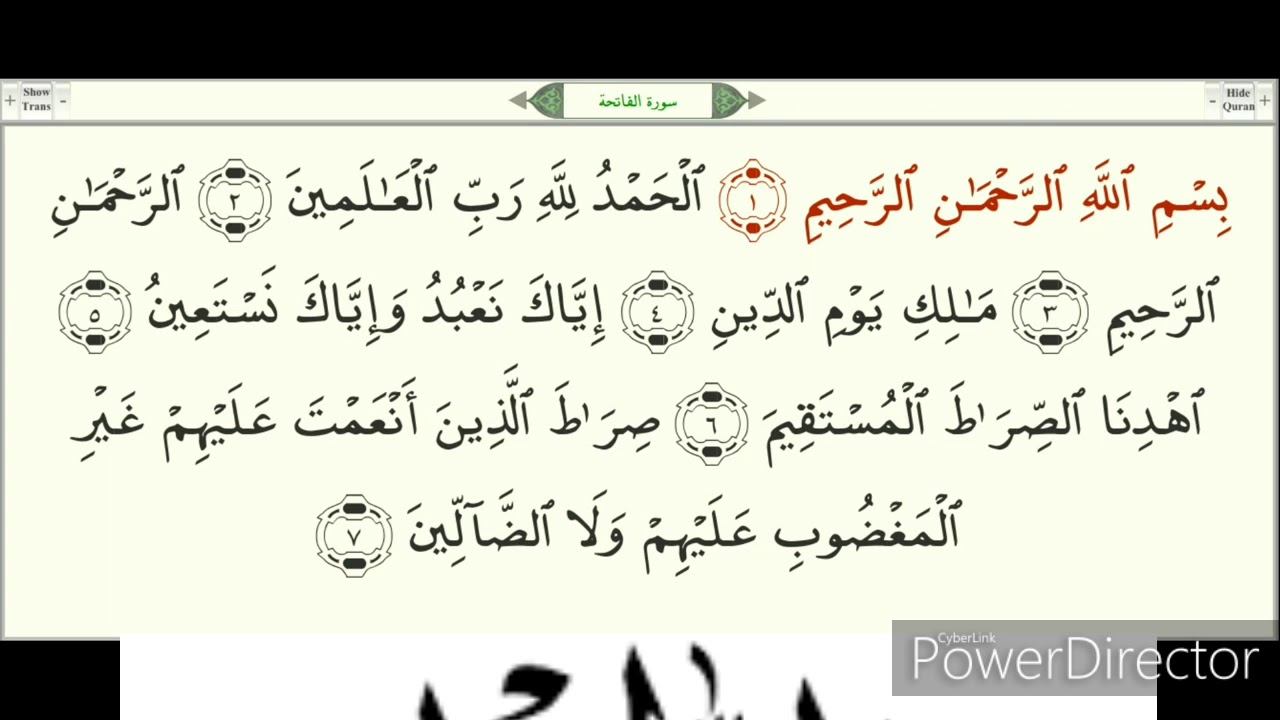 + Show Trans -
سورة الفاتحة
- Hide Quran +
بِسْمِ ٱللَّهِ ٱلرَّحْمَـٰنِ ٱلرَّحِيمِ ١ ٱلْحَمْدُ لِلَّهِ رَبِّ ٱلْعَـٰلَمِينَ ٢ ٱلرَّحْمَـٰنِ
ٱلرَّحِيمِ ٣ مَـٰلِكِ يَوْمِ ٱلدِّينِ ٤ إِيَّاكَ نَعْبُدُ وَإِيَّاكَ نَسْتَعِينُ ٥
ٱهْدِنَا ٱلصِّرَٰطَ ٱلْمُسْتَقِيمَ ٦ صِرَٰطَ ٱلَّذِينَ أَنْعَمْتَ عَلَيْهِمْ غَيْرِ
ٱلْمَغْضُوبِ عَلَيْهِمْ وَلَا ٱلضَّآلِّينَ ٧
CyberLink
PowerDirector